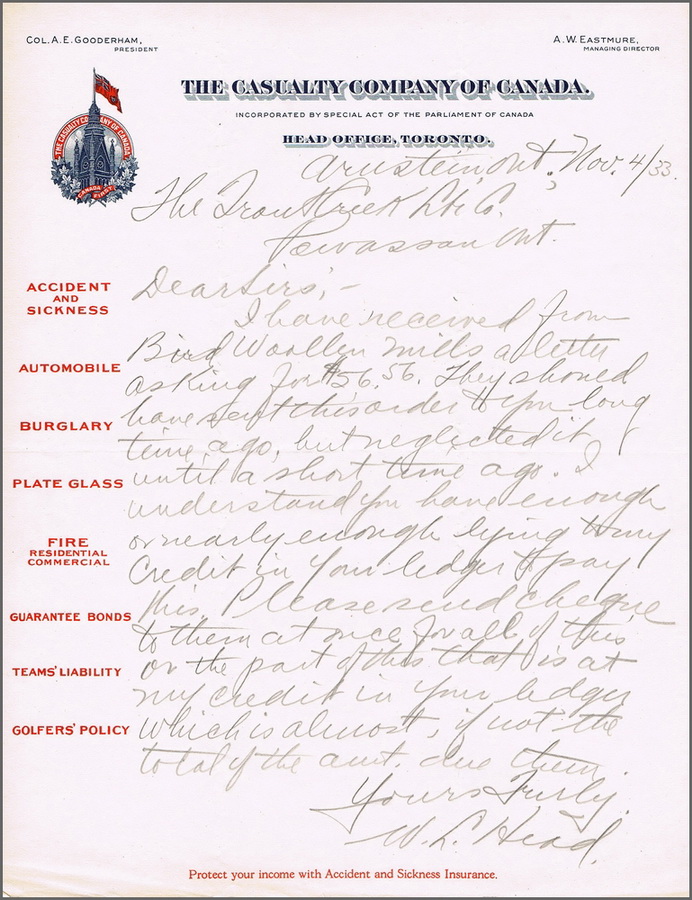 COL. A. E. GOODERHAM,
PRESIDENT
A. W. EASTMURE,
MANAGING DIRECTOR
THE CASUALTY COMPANY OF CANADA.
INCORPORATED BY SPECIAL ACT OF THE PARLIAMENT OF CANADA
HEAD OFFICE, TORONTO.
THE CASUALTY COMPANY OF CANADA
CANADA FIRST
Arnstein, Ont., Nov. 4/33.
The Trout Creek Lbr Co.
Powassan Ont.
Dear Sirs,-
I have received from
Bird Woollen Mills a letter
asking for $56.56. They should
have sent this order to you long
time ago, but neglected it
until a short time ago. I
understand you have enough
or nearly enough lying to my
credit in your ledger to pay
this. Please send cheque
to them at once for all of this
or the part of this that is at
my credit in your ledger
which is almost, if not the
total of the amt. due them.
Yours Truly,
W. L. Head.
ACCIDENT
AND
SICKNESS
AUTOMOBILE
BURGLARY
PLATE GLASS
FIRE
RESIDENTIAL
COMMERCIAL
GUARANTEE BONDS
TEAMS' LIABILITY
GOLFERS' POLICY
Protect your income with Accident and Sickness Insurance.